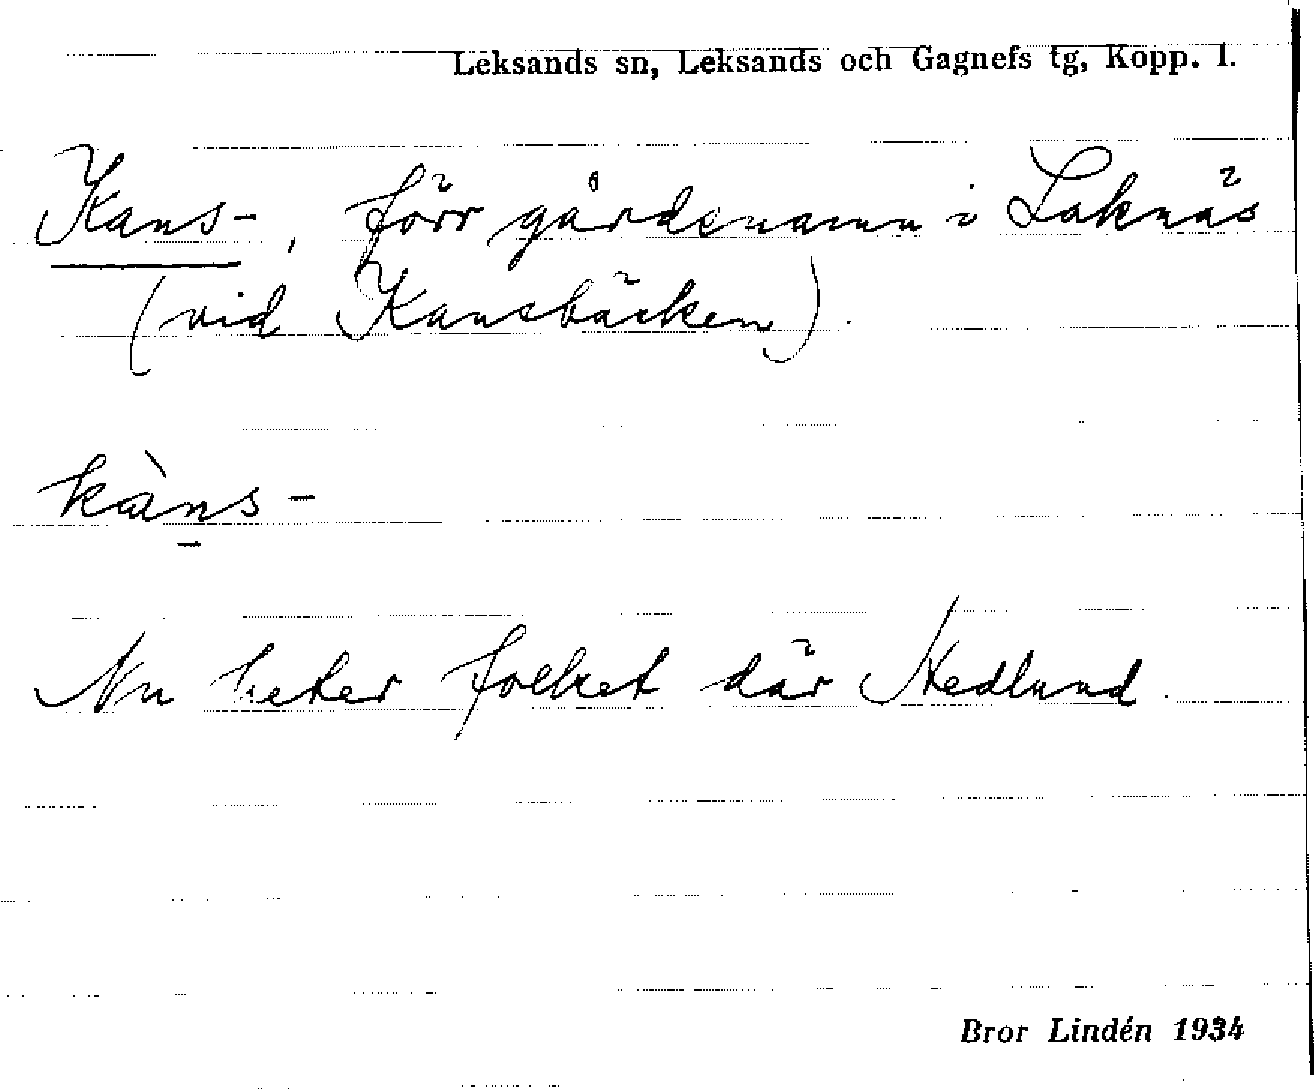 Leksands sn, Leksands och Gagnefs tg, Kopp. l.
Kans-, förr gårdsnamn i Laknäs
(vid Kansbäcken).
kàns-
Nu heter folket där Hedlund.
Bror Lindén 1934